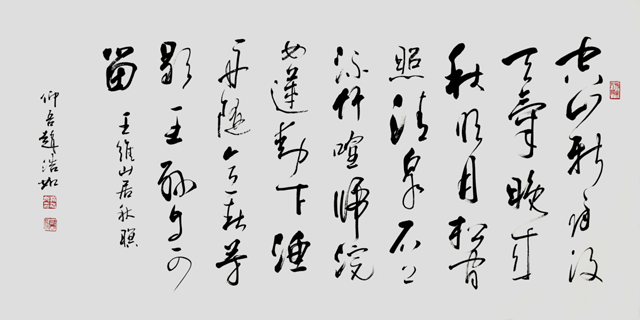 空山新雨後
天氣晚来
秋明月松間
照清泉石上
流竹喧歸浣
女蓮動下漁
舟隨意春芳
歇王孫自可
留
王維山居秋暝
仰吾趙浩如